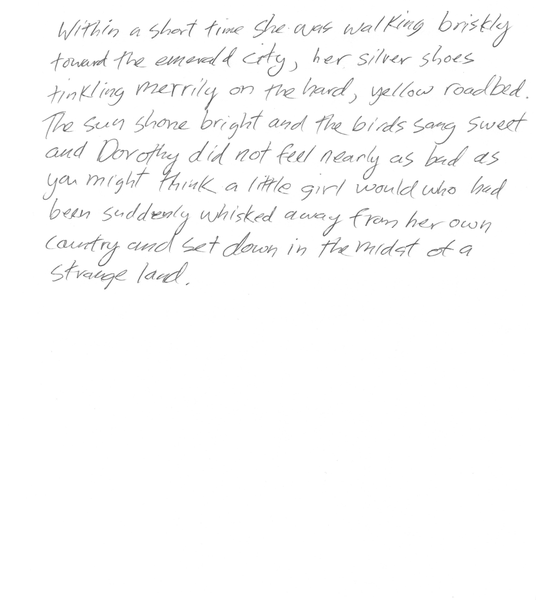 Within a short time she was walking briskly
toward the emerald city, her silver shoes
tinkling merrily on the hard, yellow roadbed.
The sun shone bright and the birds sang sweet
and Dorothy did not feel nearly as bad as
you might think a little girl would who had
been suddenly whisked away from her own
country and set down in the midst of a
strange land.